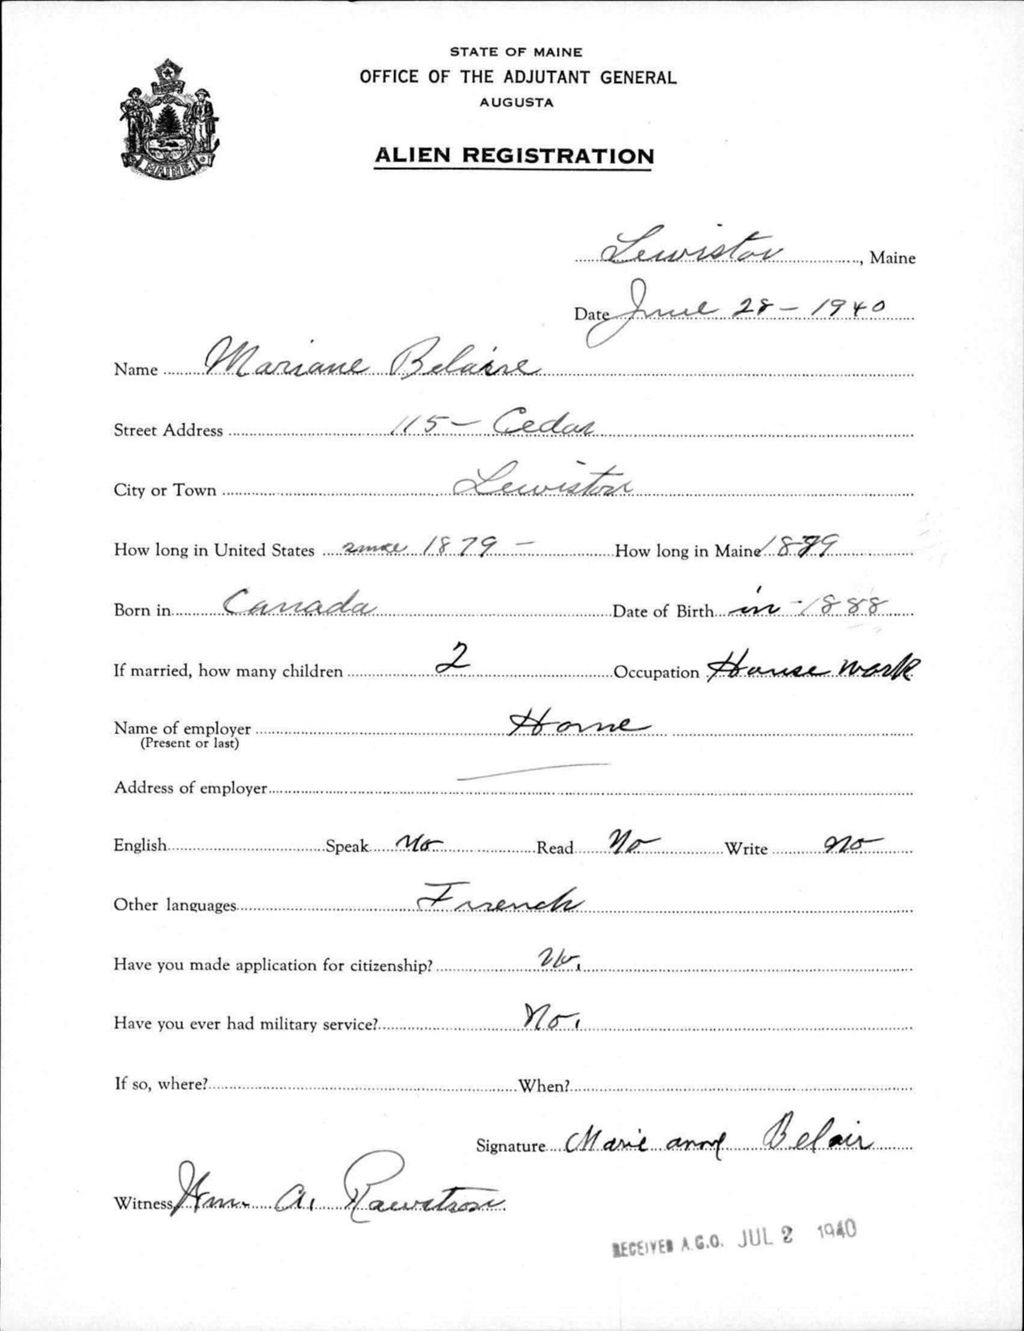 STATE OF MAINE
OFFICE OF THE ADJUTANT GENERAL
AUGUSTA
ALIEN REGISTRATION
MAINE
Lewiston, Maine
Date June 28 - 1940
Name Mariane Belaire
Street Address 115 - Cedar
City or Town Lewiston
How long in United States since 1879 - How long in Maine 1879
Born in Canada Date of Birth in - 1888
If married, how many children 2 Occupation House work
Name of employer Home
(Present or last)
Address of employer
English Speak No Read No Write No
Other languages French
Have you made application for citizenship? No.
Have you ever had military service? No.
If so, where? When?
Signature Marie anne Belair
Witness Wm. A. Rawstron
RECEIVED A.G.O. JUL 2 1940